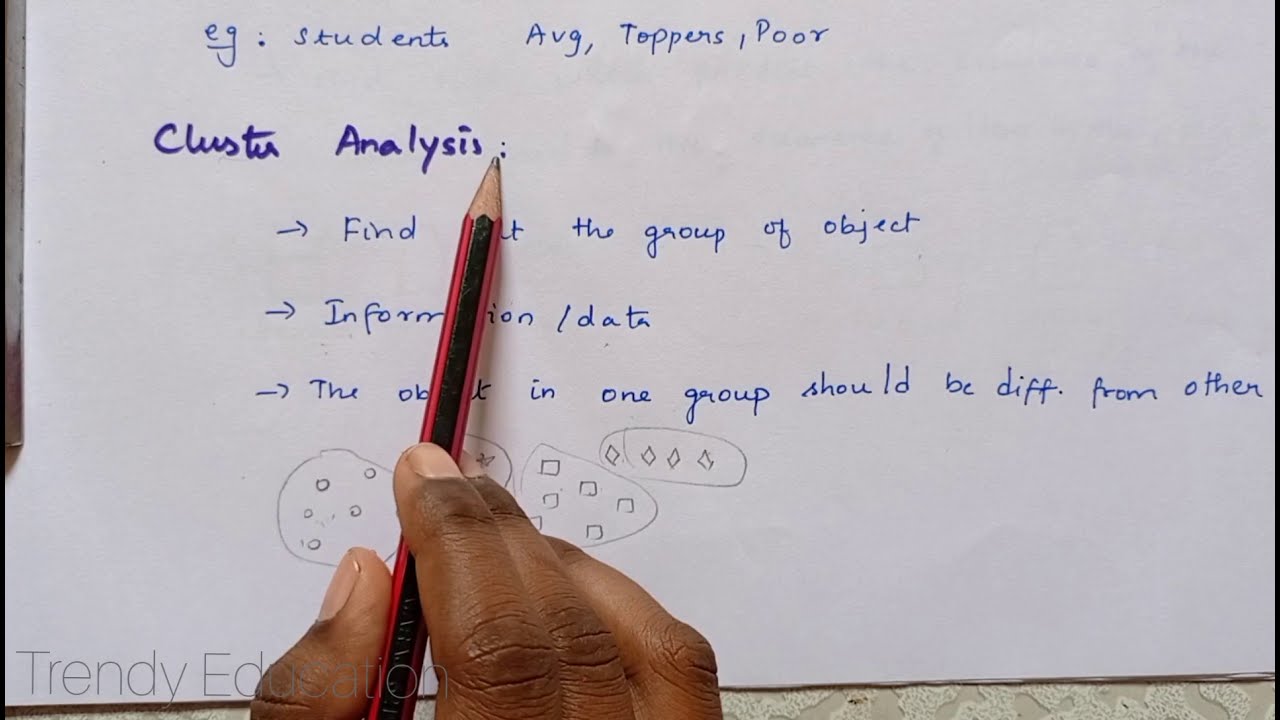 eg : students Avg, Toppers, Poor
Cluster Analysis :
→ Find the group of object
→ Information / data
→ The object in one group should be diff. from other
Trendy Education